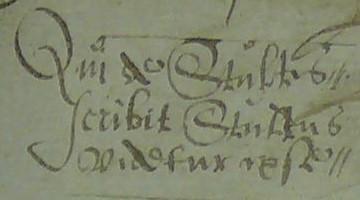 Qui de Stultis
scribit Stultus
videtur ipse